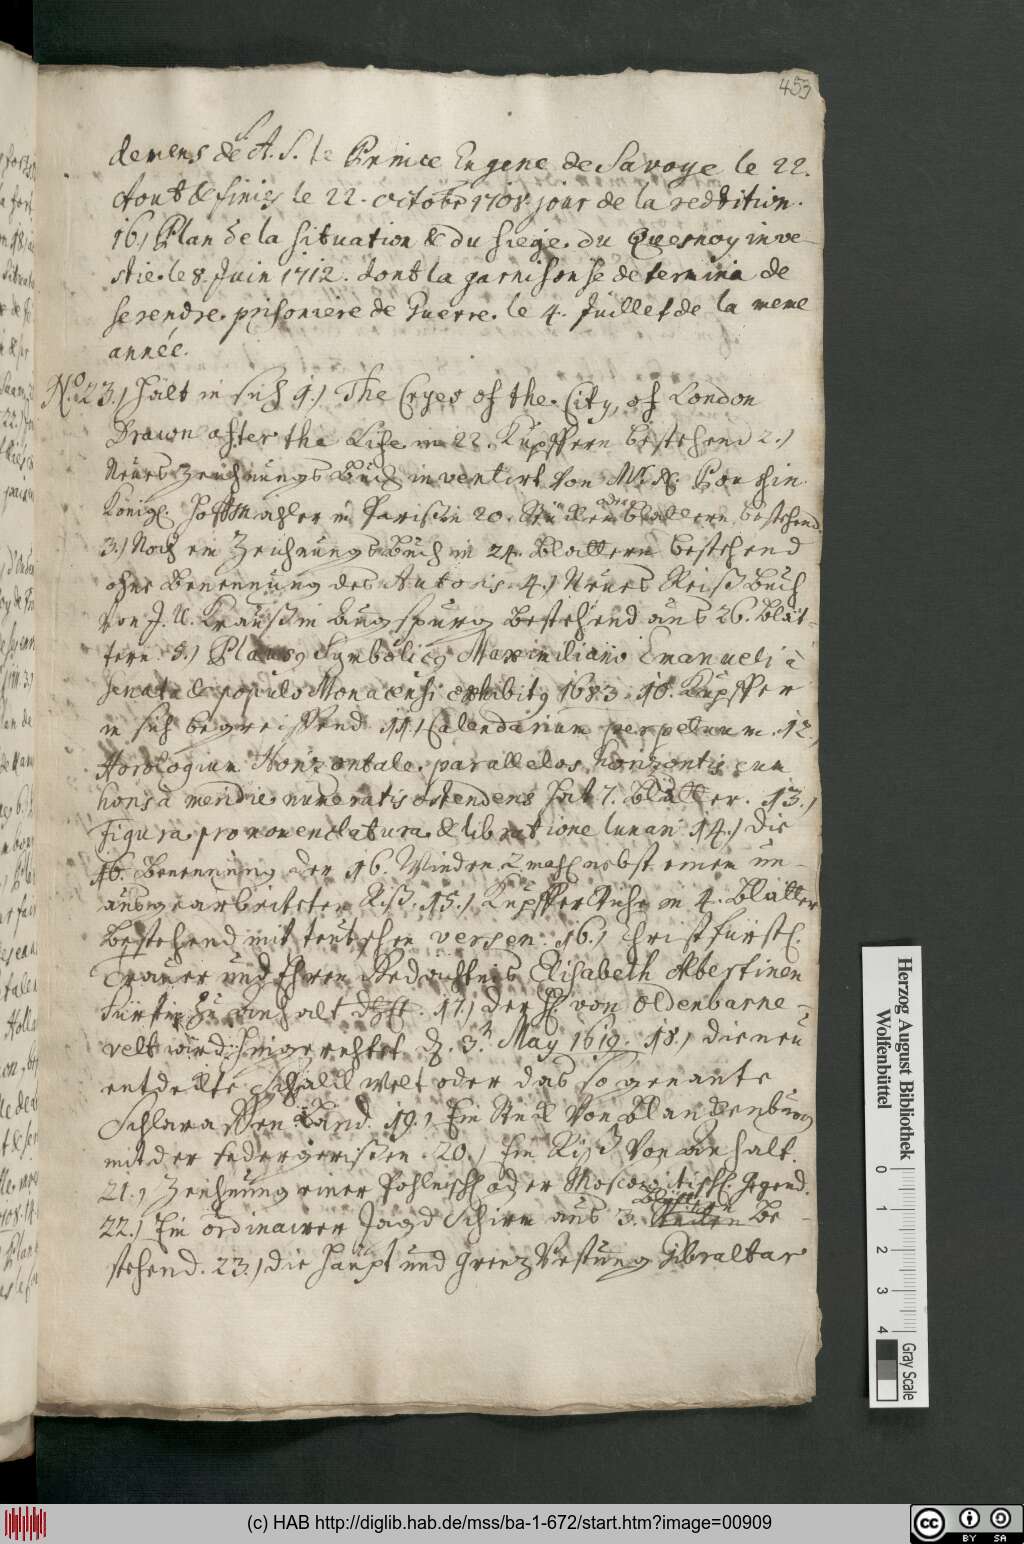 453
demens de S. A. S. le Prince Eugene de Savoye le 22.
Aout & finies le 22. Octobr 1708. jour de la reddition.
16.) Plan de la situation & du siege du Quesnoy inve-
stie le 8. Juin 1712. dont la garnison se determina de
se rendre prisoniere de Guerre le 4. Juillet de la meme
année.
No. 23.) hält in sich 1.) The Cryes of the City, of London
Drawn after the Life in 22. Kupffern bestehend 2.)
Neues Zeichnungs Buch inventirt von Mr. Poushin
Königl. Hoff Mahler in Pariß in 20. Stücken oder blattern bestehend
3.) Noch ein Zeichnungs Buch in 24. Blattern bestehend
ohne Benennung des Autoris. 4.) Neues Reiß Buch
von J. U. Krauß in Augspurg bestehend aus 26. Blät-
tern. 5.) Plausq Symbolicq Maximiliano Emanueli à
senatu & populo Monacensi exhibitq 1683. 10. Kupffer
in sich begreiffend. 11.) Calendarium perpetuum. 12.)
Horologium Horizontale parallelos horizontis cum
horis à meridie numeratis ostendens hat 7. Blätter. 13.)
Figura pro nomenclatura & libratione lunari 14.) die
16. Benennung der 16. Winden 2 mahl nebst einem un-
ausgearbeiteten Riß. 15.) Kupfferstiche in 4. Blätter
bestehend mit teutschen versen. 16.) Christfürstl.
Trauer und Ehren Gedächtnis Elisabeth Albertinen
Fürstin zu Anhalt 17.) der H. von Oldenbarne-
velt wird hingerichtet d. 3. May 1619. 18.) die neu
entdeckte Schalck Welt oder das so genante
Schlaraffen Land. 19.) Ein Stück von Blanckenburg
mit der Feder gerißen. 20.) Ein Riß von Anhalt.
21.) Zeichnung einer Pohlnisch oder Moscovitisch. Gegend.
22.) Ein ordinairer Jagd Schirm aus 3. Blättern be-
stehend. 23.) die Haupt und Grenz Vestung Gibraltar
Herzog August Bibliothek
Wolfenbüttel
0 1 2 3 4
Gray Scale
(c) HAB http://diglib.hab.de/mss/ba-1-672/start.htm?image=00909
cc BY SA